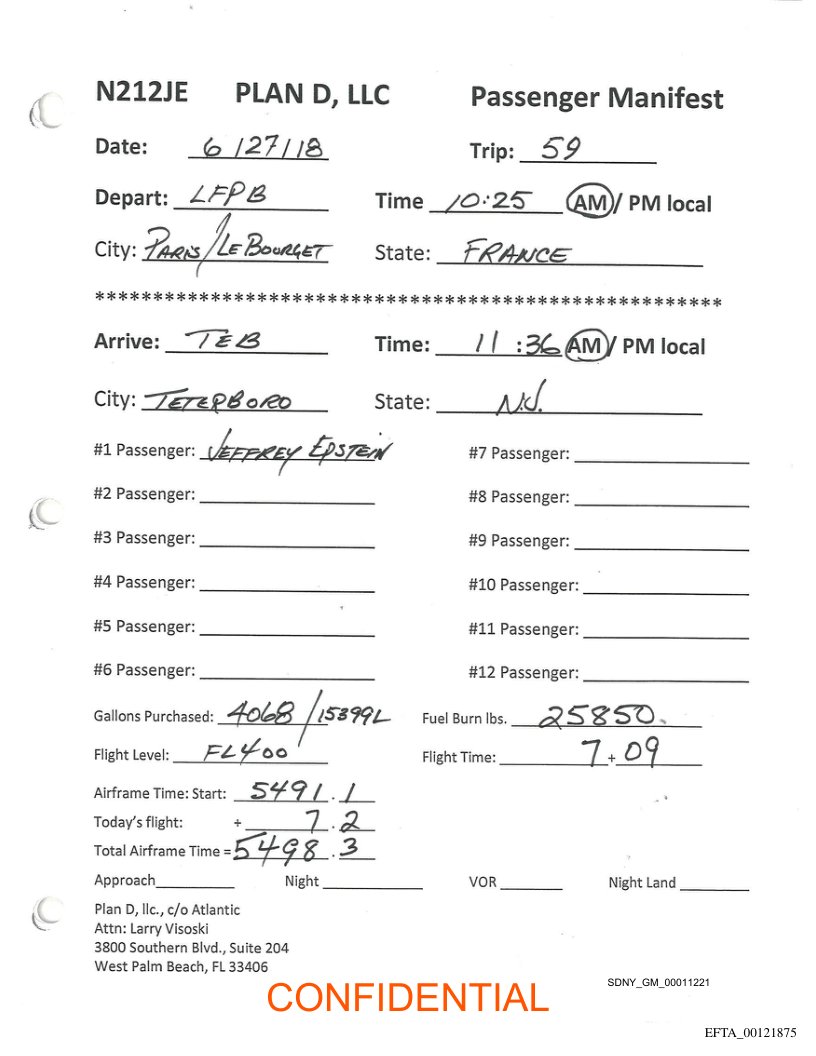 N212JE PLAN D, LLC Passenger Manifest
Date: 6/27/18 Trip: 59
Depart: LFPB Time 10:25 AM/ PM local
City: PARIS/LE BOURGET State: FRANCE
******************************************************
Arrive: TEB Time: 11:36 AM/ PM local
City: TETERBORO State: N.J.
#1 Passenger: JEFFREY EPSTEIN #7 Passenger:
#2 Passenger: #8 Passenger:
#3 Passenger: #9 Passenger:
#4 Passenger: #10 Passenger:
#5 Passenger: #11 Passenger:
#6 Passenger: #12 Passenger:
Gallons Purchased: 4068/15399L Fuel Burn lbs. 25850.
Flight Level: FL400 Flight Time: 7+09
Airframe Time: Start: 5491.1
Today's flight: + 7.2
Total Airframe Time = 5498.3
Approach Night VOR Night Land
Plan D, llc., c/o Atlantic
Attn: Larry Visoski
3800 Southern Blvd., Suite 204
West Palm Beach, FL 33406
SDNY_GM_00011221
CONFIDENTIAL
EFTA_00121875